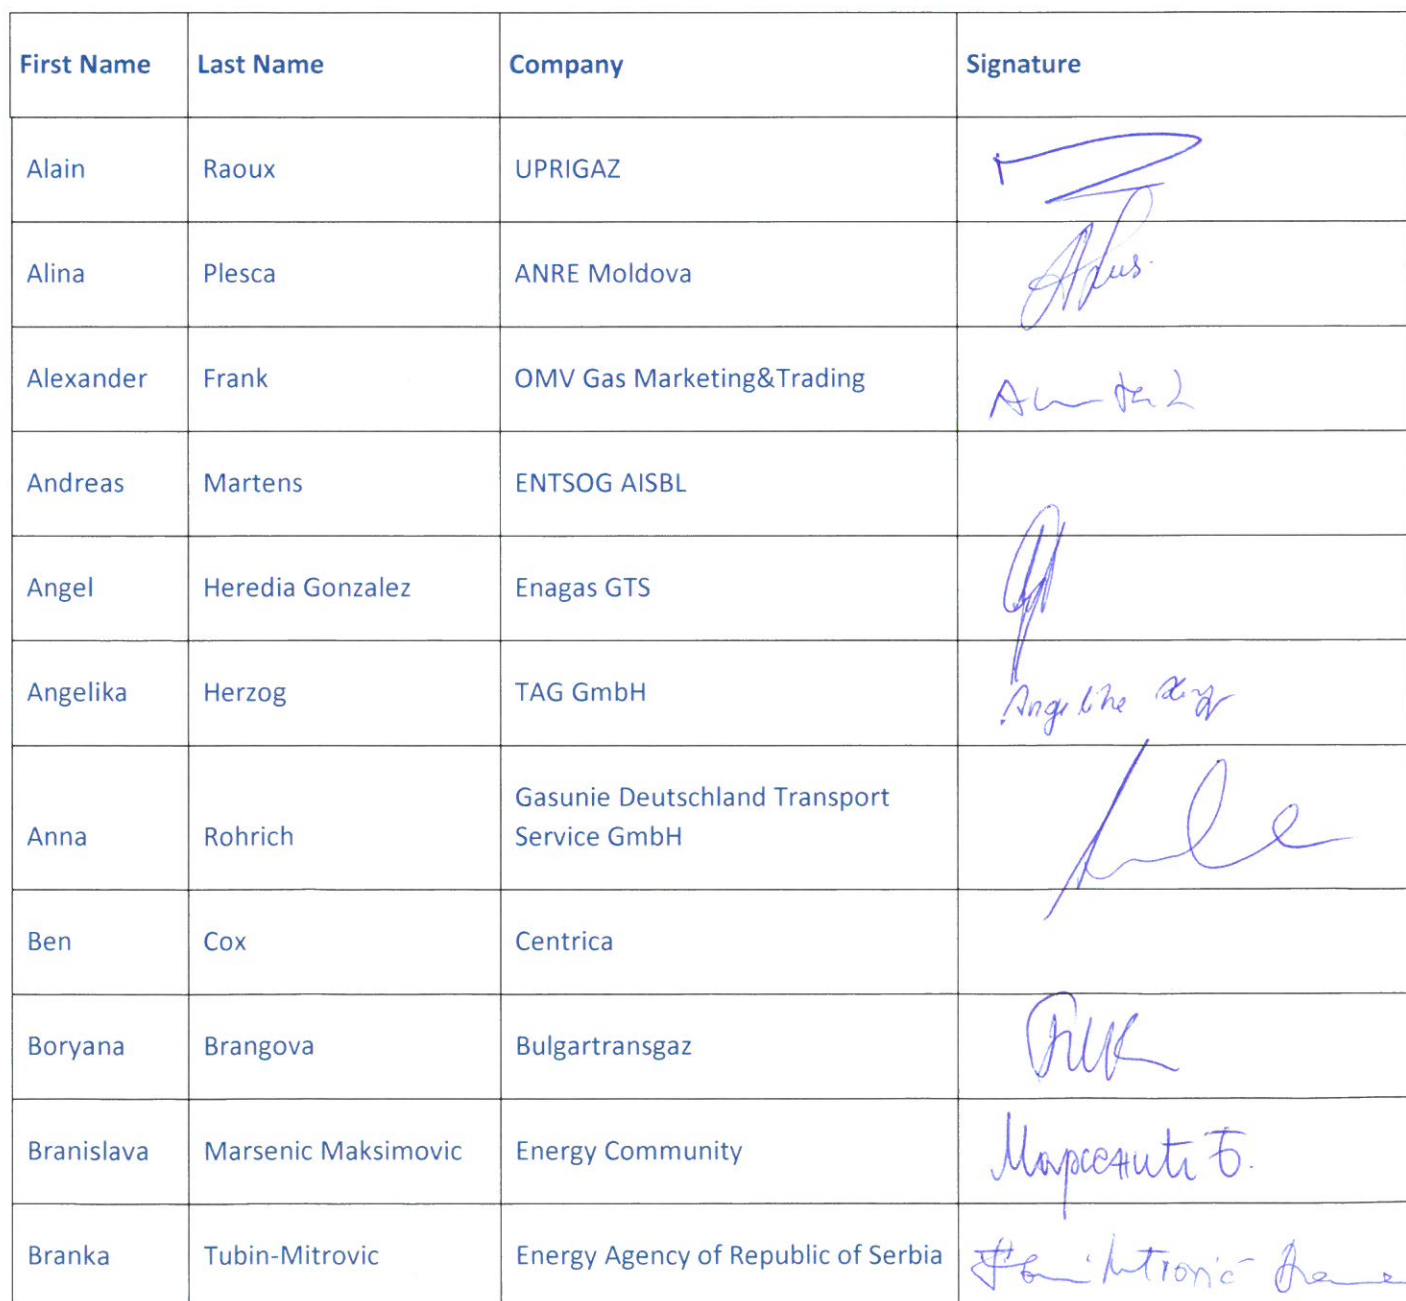 First Name Last Name Company Signature
Alain Raoux UPRIGAZ
Alina Plesca ANRE Moldova
Alexander Frank OMV Gas Marketing&Trading
Andreas Martens ENTSOG AISBL
Angel Heredia Gonzalez Enagas GTS
Angelika Herzog TAG GmbH
Gasunie Deutschland Transport
Anna Rohrich Service GmbH
Ben Cox Centrica
Boryana Brangova Bulgartransgaz
Branislava Marsenic Maksimovic Energy Community Марсенић Б.
Branka Tubin-Mitrovic Energy Agency of Republic of Serbia